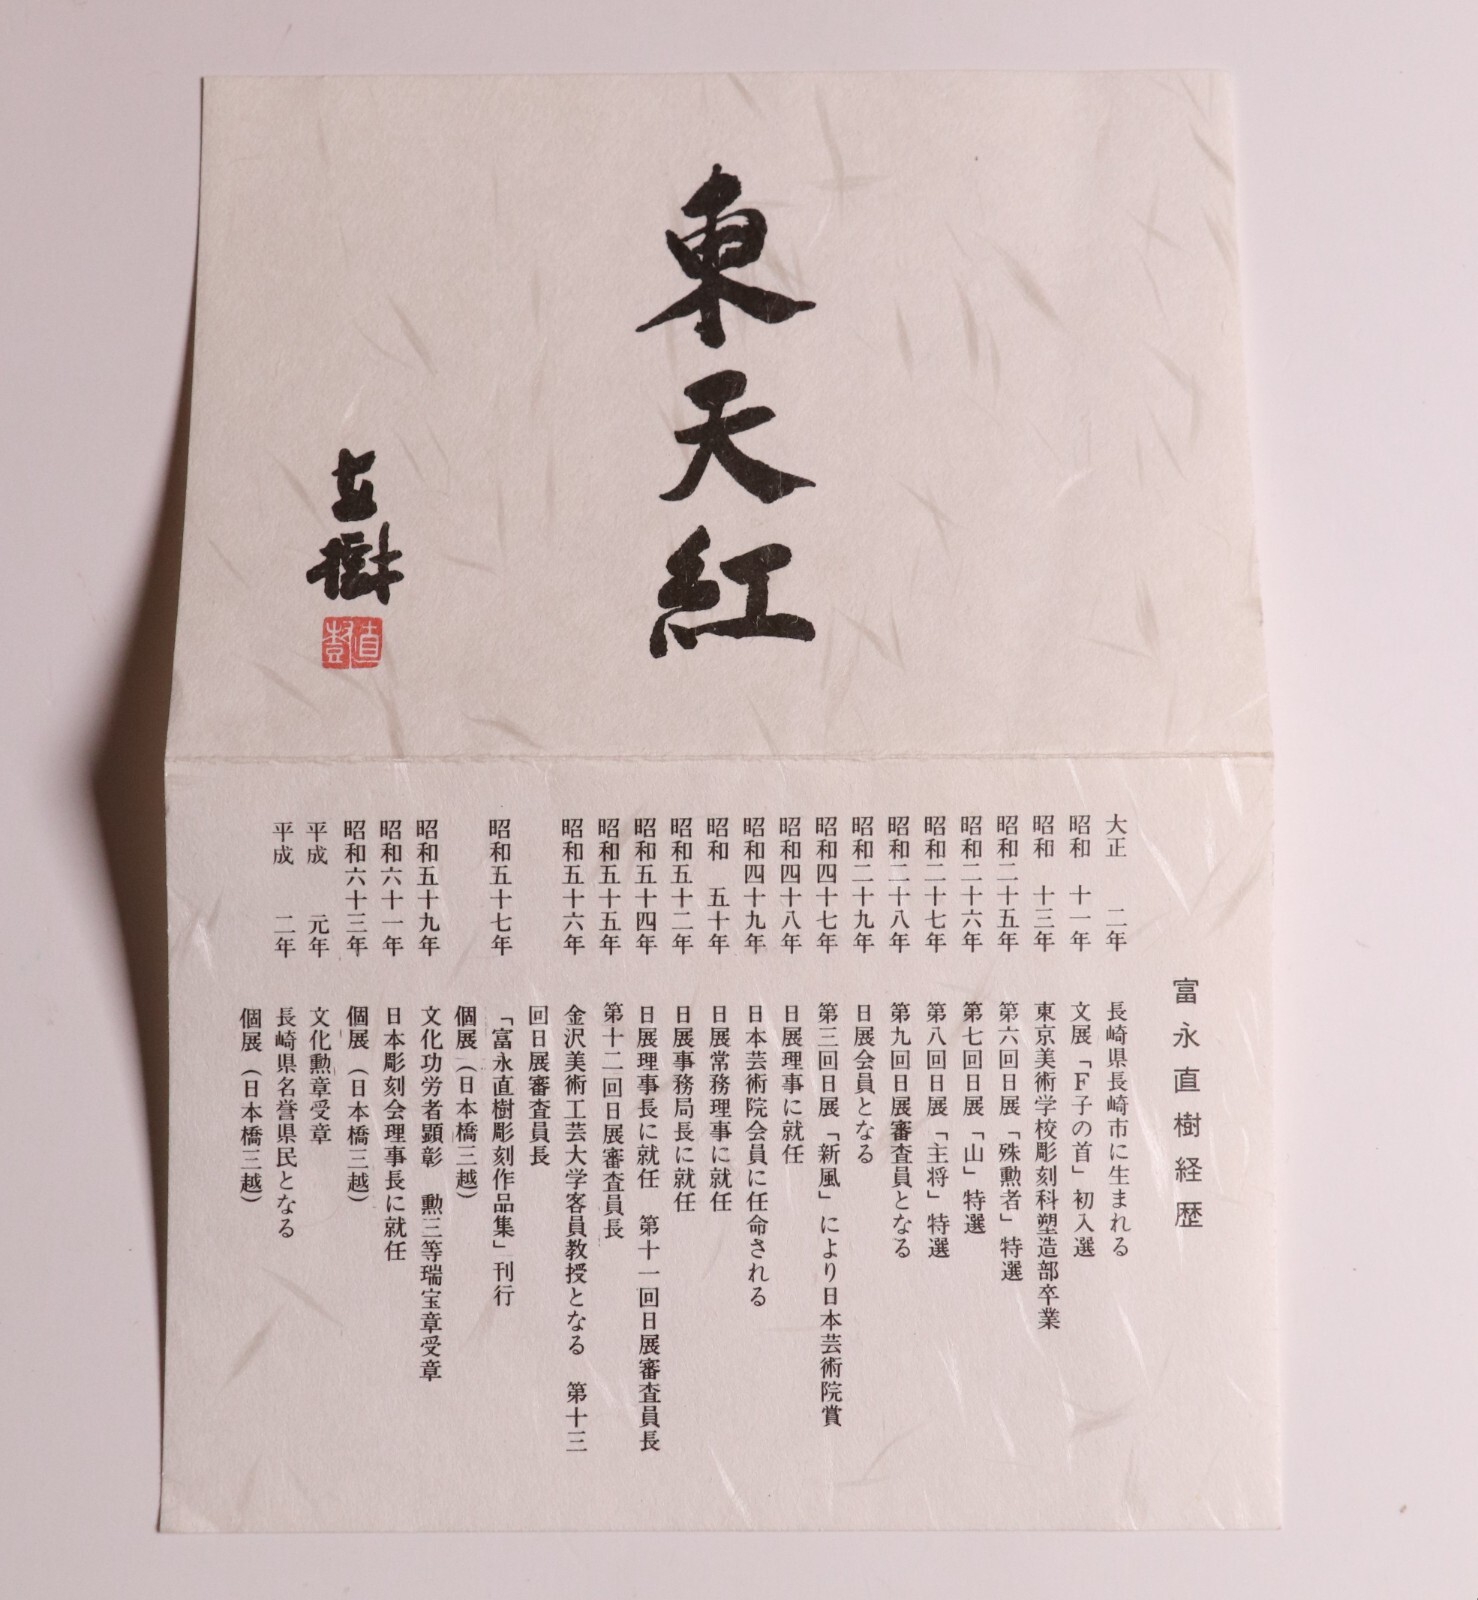 東天紅
直樹
直樹
富永直樹経歴
大正 二年 長崎県長崎市に生まれる
昭和 十一年 文展「F子の首」初入選
昭和 十三年 東京美術学校彫刻科塑造部卒業
昭和二十五年 第六回日展「殊勲者」特選
昭和二十六年 第七回日展「山」特選
昭和二十七年 第八回日展「主将」特選
昭和二十八年 第九回日展審査員となる
昭和二十九年 日展会員となる
昭和四十七年 第三回日展「新風」により日本芸術院賞
昭和四十八年 日展理事に就任
昭和四十九年 日本芸術院会員に任命される
昭和 五十年 日展常務理事に就任
昭和五十二年 日展事務局長に就任
昭和五十四年 日展理事長に就任 第十一回日展審査員長
昭和五十五年 第十二回日展審査員長
昭和五十六年 金沢美術工芸大学客員教授となる 第十三
回日展審査員長
昭和五十七年 「富永直樹彫刻作品集」刊行
個展(日本橋三越)
昭和五十九年 文化功労者顕彰 勲三等瑞宝章受章
昭和六十一年 日本彫刻会理事長に就任
昭和六十三年 個展(日本橋三越)
平成 元年 文化勲章受章
平成 二年 長崎県名誉県民となる
個展(日本橋三越)